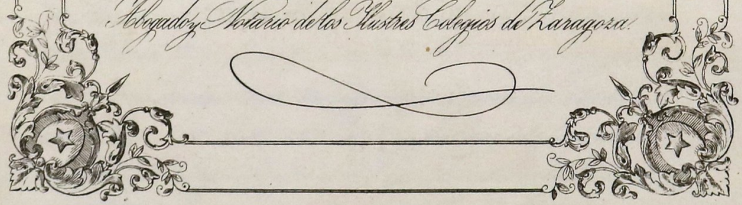 Abogado y Notario de los Ilustres Colegios de Zaragoza.